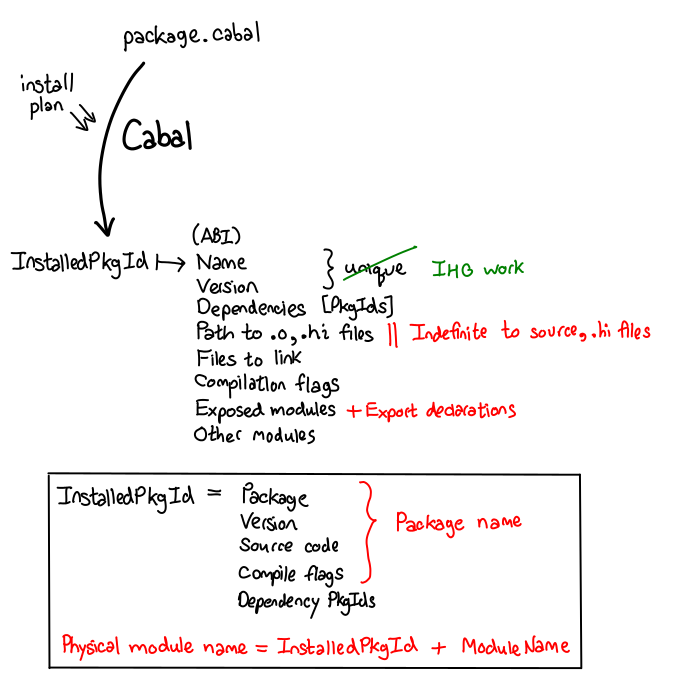 package.cabal
install
plan
Cabal
(ABI)
InstalledPkgId ↦ Name } unique IHG work
Version
Dependencies [PkgIds]
Path to .o, .hi files || Indefinite to source, .hi files
Files to link
Compilation flags
Exposed modules + Export declarations
Other modules
InstalledPkgId = Package
Version
Source code
Compile flags
} Package name
Dependency PkgIds
Physical module name = InstalledPkgId + ModuleName